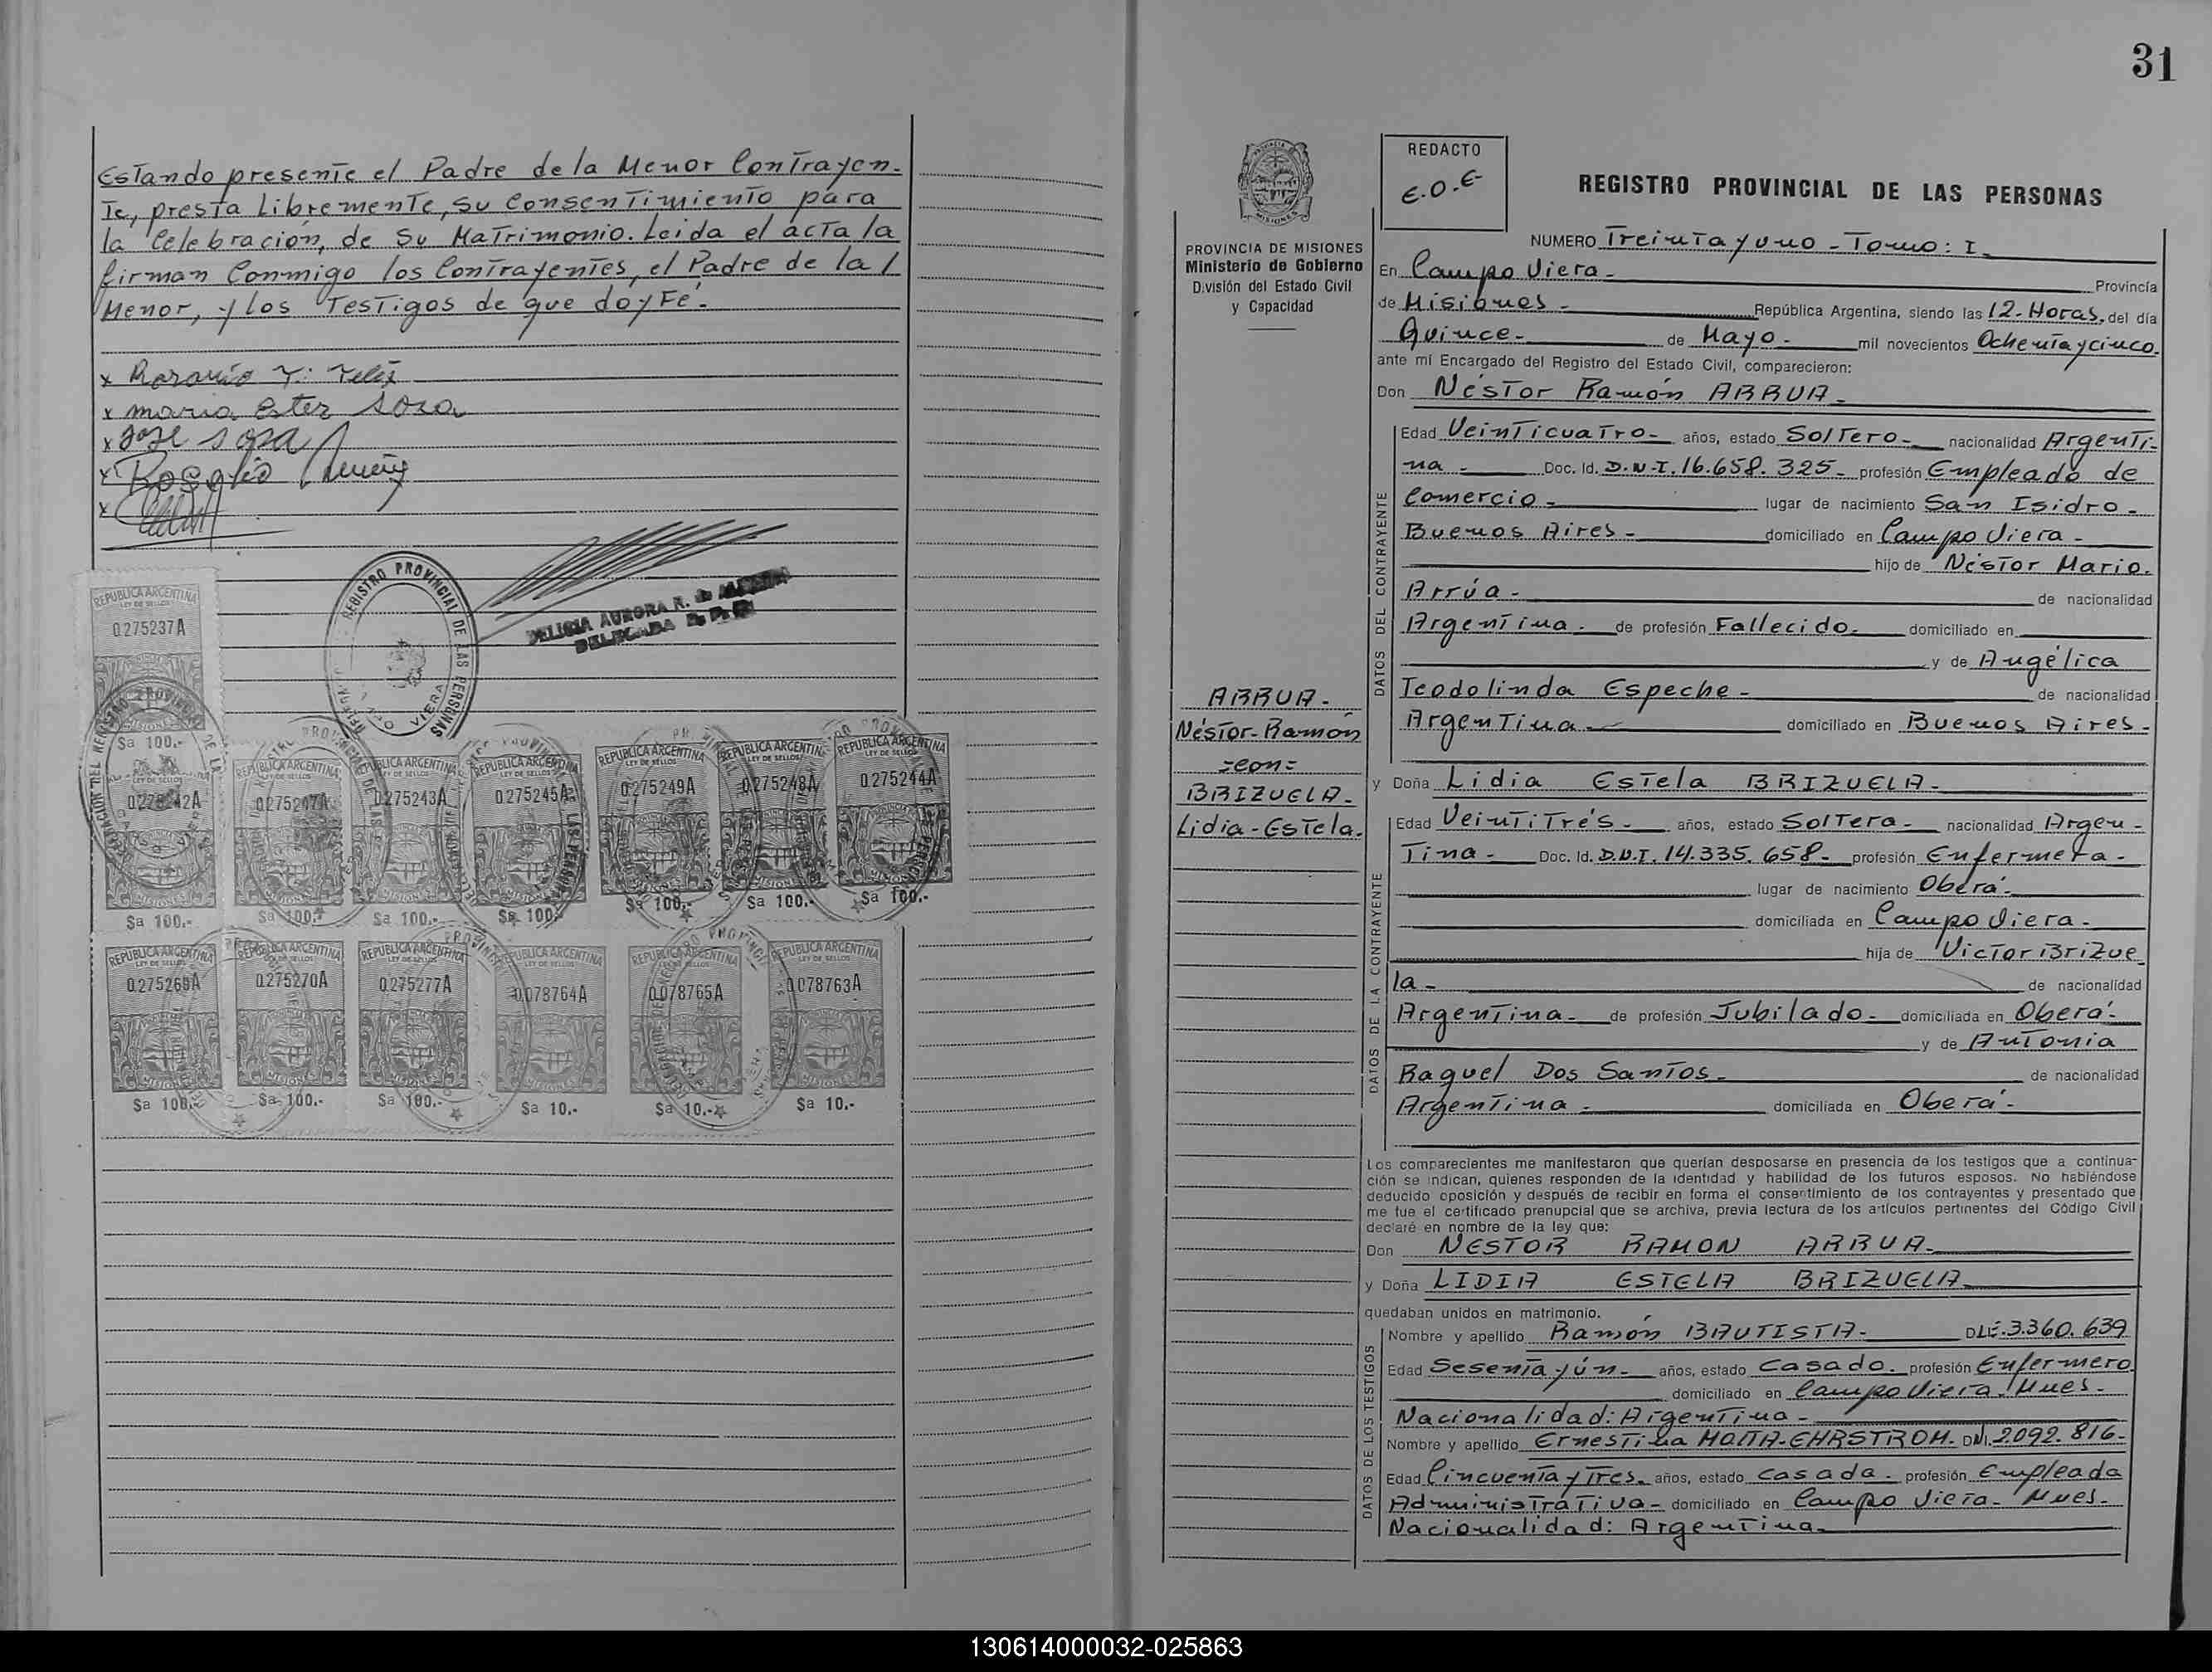 Estando presente el Padre de la Menor Contrayen-
te, presta Libremente, su Consentimiento para
la Celebración, de Su Matrimonio. Leida el acta la
firman Conmigo los Contrayentes, el Padre de la /
Menor, y los Testigos de que doy Fé.-
x Rosario
x maria Ester Sosa
x José sosa
x Rosalio
x
REGISTRO PROVINCIAL DE LAS PERSONAS
DELICIA AURORA R. de
DELEGADA R. P. P.
REPUBLICA ARGENTINA
LEY DE SELLOS
0.275237A
$a 100.-
$a 100.-
REPUBLICA ARGENTINA
0.275243A
$a 100.-
REPUBLICA ARGENTINA
0.275245A
$a 100.-
REPUBLICA ARGENTINA
0.275249A
$a 100.-
REPUBLICA ARGENTINA
0.275248A
$a 100.-
REPUBLICA ARGENTINA
0.275244A
$a 100.-
REPUBLICA ARGENTINA
0.275269A
$a 100.-
REPUBLICA ARGENTINA
0.275270A
$a 100.-
REPUBLICA ARGENTINA
0.275277A
$a 100.-
REPUBLICA ARGENTINA
0.078764A
$a 10.-
REPUBLICA ARGENTINA
0.078765A
$a 10.-
REPUBLICA ARGENTINA
0.078763A
$a 10.-
31
PROVINCIA DE MISIONES
Ministerio de Gobierno
División del Estado Civil
y Capacidad
ARRUA.-
Néstor-Ramón
=con=
BRIZUELA.-
Lidia-Estela.
REDACTO
E.O.E
REGISTRO PROVINCIAL DE LAS PERSONAS
NUMERO Treinta y uno - Tomo: I
En Campo Viera.- Provincia
de Misiones.- República Argentina, siendo las 12-Horas, del día
Quince.- de Mayo.- mil novecientos Ochenta y cinco.
ante mí Encargado del Registro del Estado Civil, comparecieron:
Don Néstor Ramón ARRUA.-
DATOS DEL CONTRAYENTE
Edad Veinticuatro.- años, estado Soltero.- nacionalidad Argenti-
na.- Doc. Id. D.N.I. 16.658.325.- profesión Empleado de
Comercio.- lugar de nacimiento San Isidro-
Buenos Aires.- domiciliado en Campo Viera.-
hijo de Néstor Mario.
Arrúa.- de nacionalidad
Argentina.- de profesión Fallecido.- domiciliado en
y de Angélica
Teodolinda Espeche.- de nacionalidad
Argentina.- domiciliado en Buenos Aires.-
y Doña Lidia Estela BRIZUELA.-
DATOS DE LA CONTRAYENTE
Edad Veintitrés.- años, estado Soltera.- nacionalidad Argen-
tina.- Doc. Id. D.N.I. 14.335.658.- profesión Enfermera.-
lugar de nacimiento Oberá.-
domiciliada en Campo Viera.-
hija de Victor Brizue
la.- de nacionalidad
Argentina.- de profesión Jubilado.- domiciliada en Oberá.-
y de Antonia
Raquel Dos Santos.- de nacionalidad
Argentina.- domiciliada en Oberá.-
Los comparecientes me manifestaron que querían desposarse en presencia de los testigos que a continua-
ción se indican, quienes responden de la identidad y habilidad de los futuros esposos. No habiéndose
deducido oposición y después de recibir en forma el consentimiento de los contrayentes y presentado que
me fue el certificado prenupcial que se archiva, previa lectura de los artículos pertinentes del Código Civil
declaré en nombre de la ley que:
Don NESTOR RAMON ARRUA.-
y Doña LIDIA ESTELA BRIZUELA.-
quedaban unidos en matrimonio.
DATOS DE LOS TESTIGOS
Nombre y apellido Ramón BAUTISTA.- DLE.3.360.639
Edad Sesenta y ún.- años, estado Casado.- profesión Enfermero.
domiciliado en Campo Viera. Mnes.-
Nacionalidad: Argentina.-
Nombre y apellido Ernestina EHRSTROM. DNI. 2.092.816.-
Edad Cincuenta y tres. años, estado Casada.- profesión Empleada
Administrativa.- domiciliado en Campo Viera- Mnes.-
Nacionalidad: Argentina.-
130614000032-025863